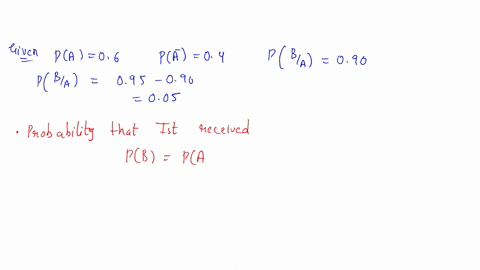 Given P(A) = 0.6 P(Ā) = 0.4 P(B/A) = 0.90
P(B/A) = 0.95 - 0.90
= 0.05
• Probability that Ist received
P(B) = P(A